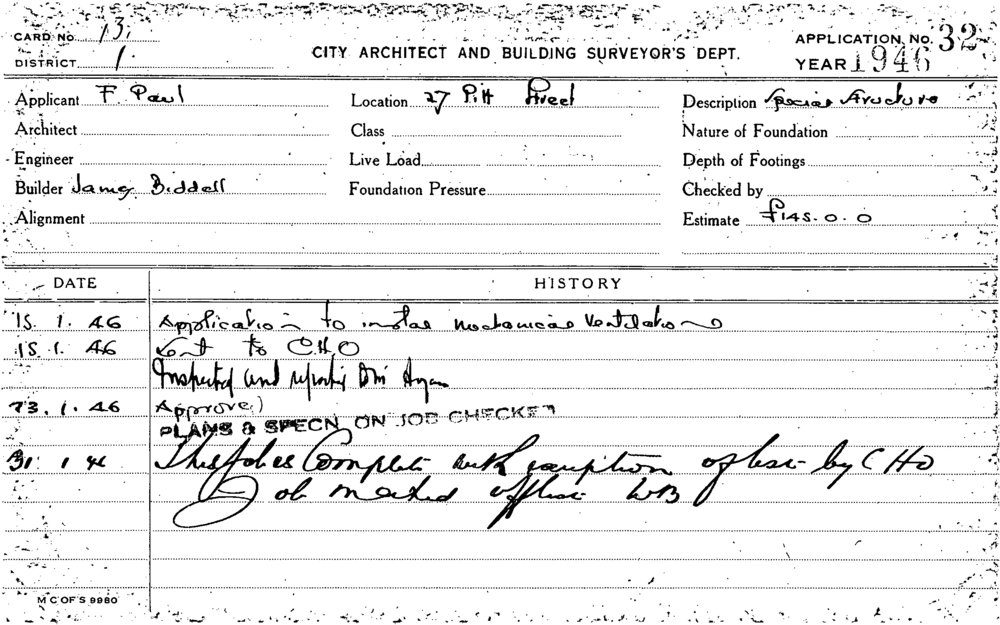 CARD No. 13.
DISTRICT 1.
CITY ARCHITECT AND BUILDING SURVEYOR'S DEPT.
APPLICATION No. 32
YEAR 1946
Applicant F. Paul
Location 27 Pitt Street
Description Special Structure
Architect
Class
Nature of Foundation
Engineer
Live Load
Depth of Footings
Builder James Biddell
Foundation Pressure
Checked by
Alignment
Estimate £145.0.0
DATE HISTORY
15. 1. 46 Application to install mechanical ventilation
15. 1. 46 Sent to C.H.O
Inspected and
23. 1. 46 Approved
PLANS & SPECN ON JOB CHECKED
31. 1 46 This Job is Complete with exception of by CHO
Job marked WB
M C OF S 9980